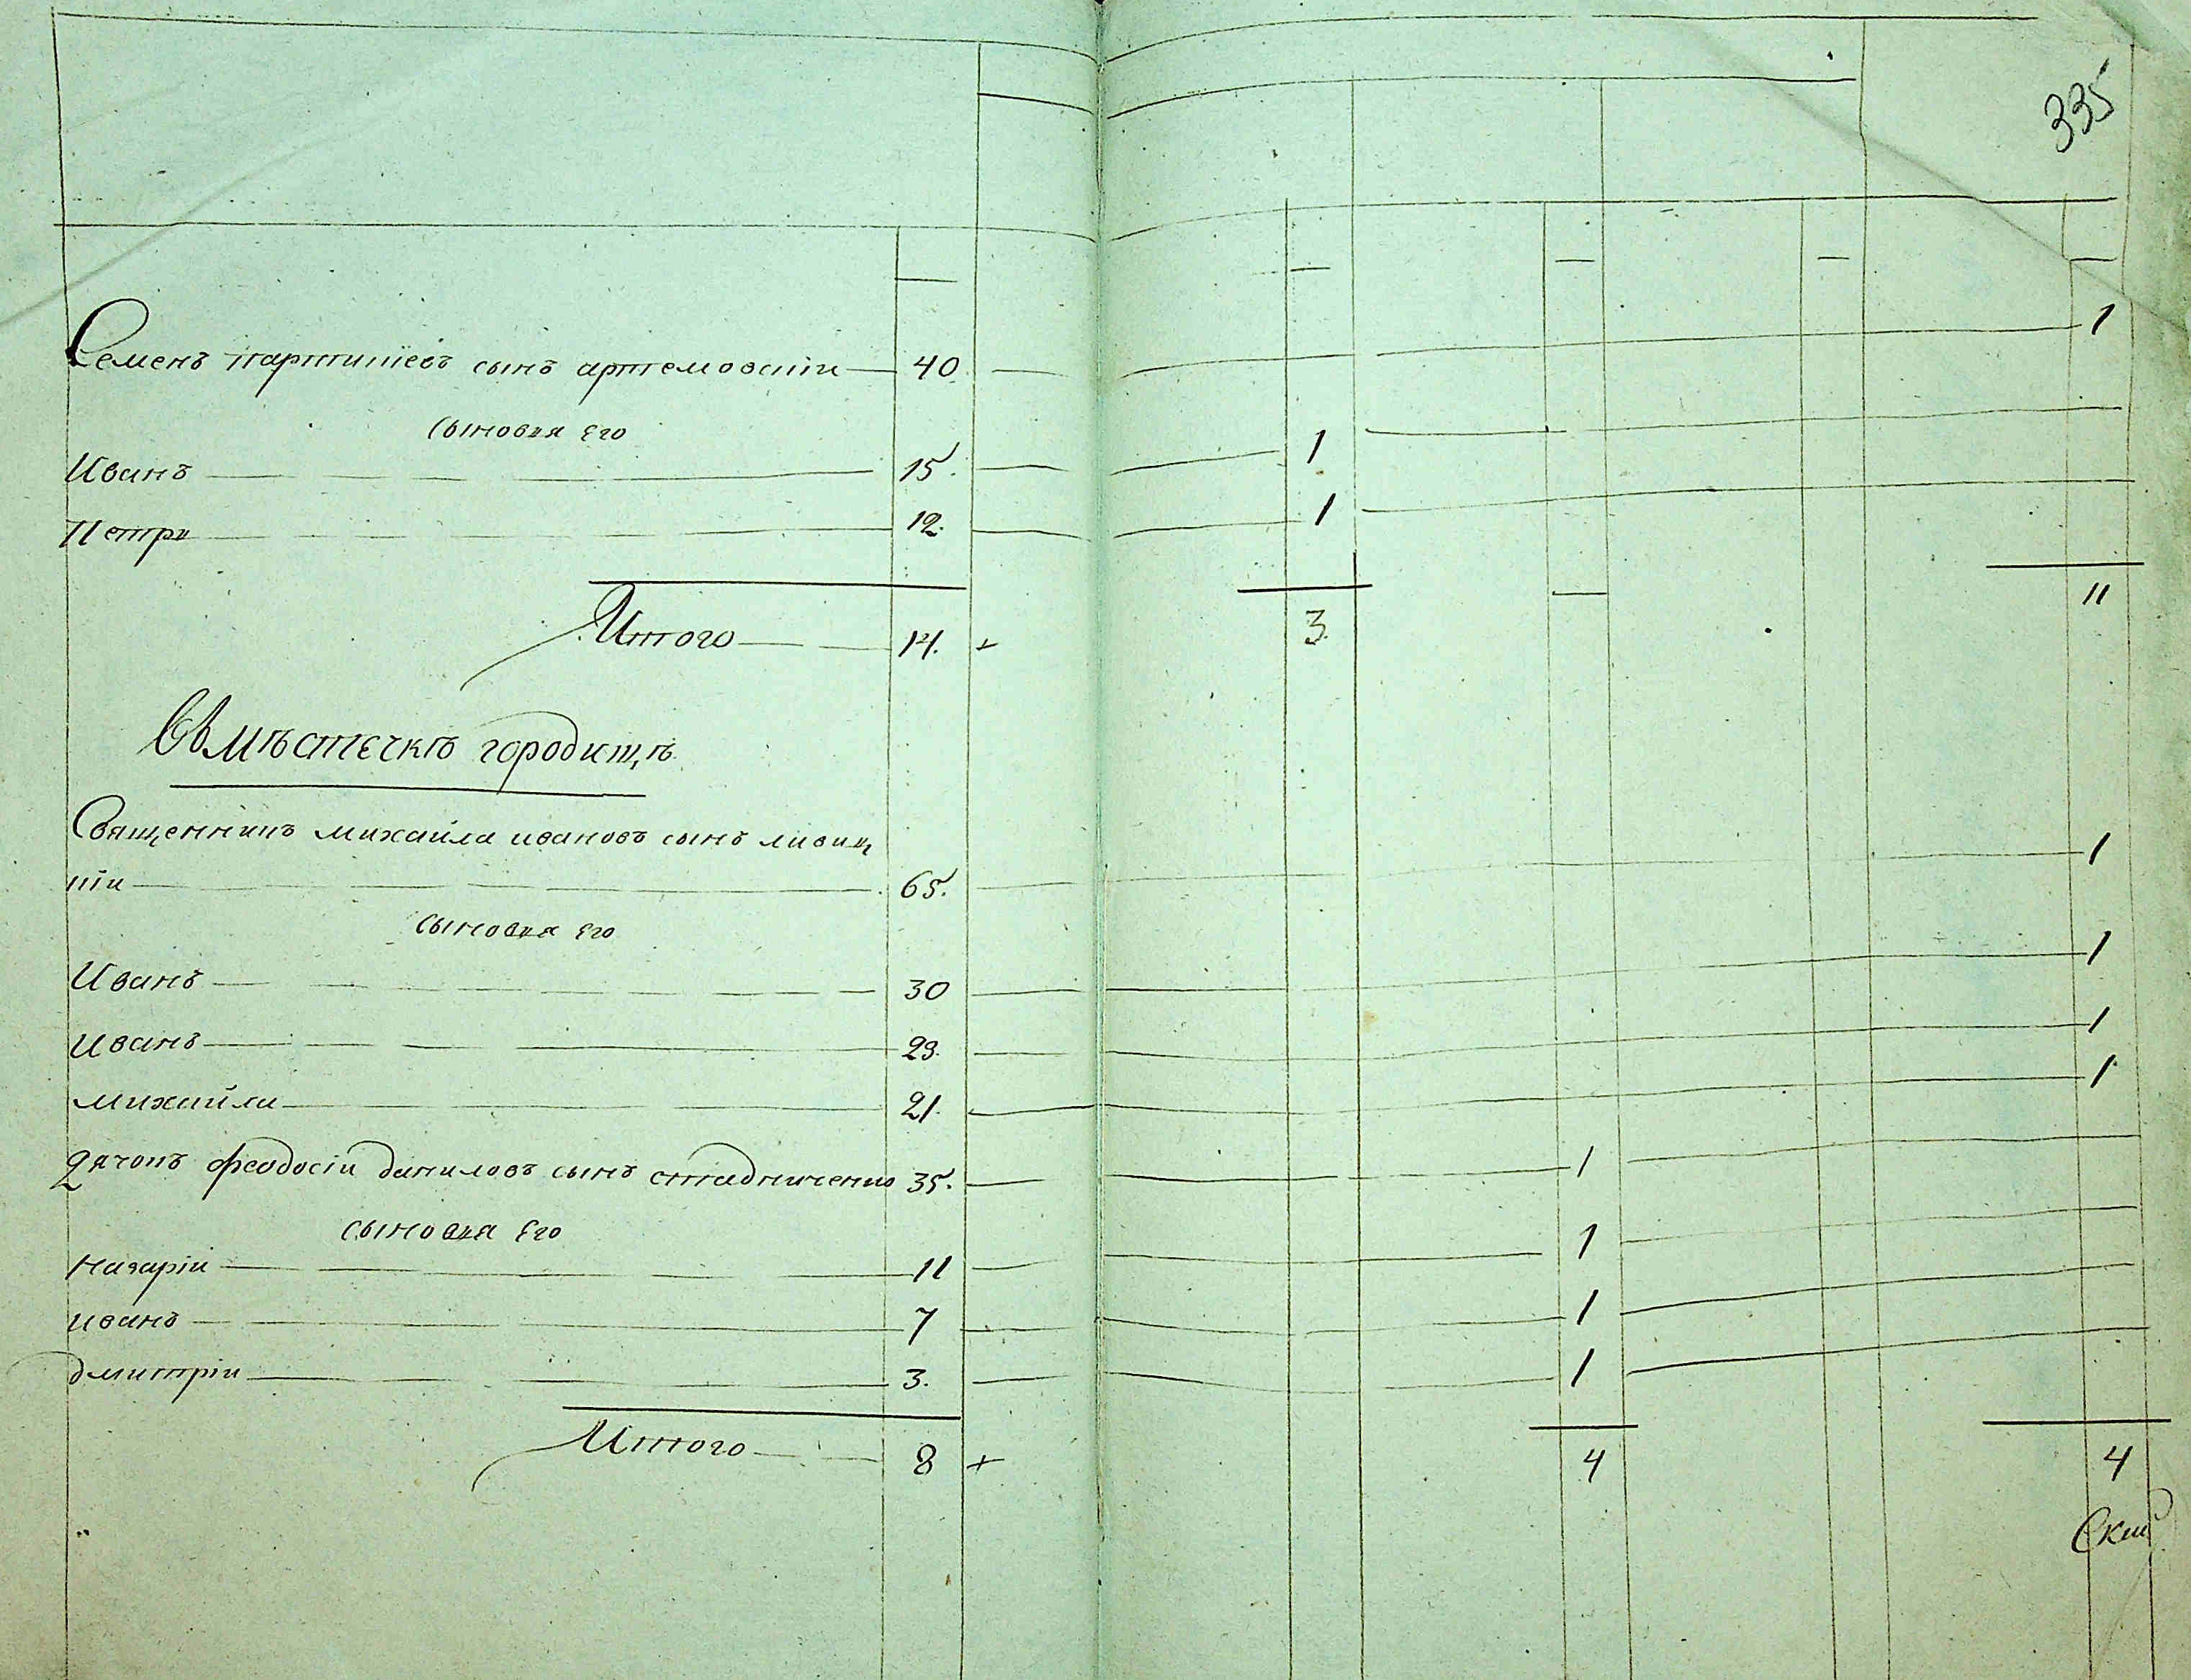 335
Семенъ партиніевъ сынъ артемовскіи 40 1
сыновья Его
Иванъ 15. 1
Петръ 12. 1
Итого 14. + 3. 11
Въ Мѣстечкѣ городищѣ
Священникъ михайла ивановъ сынъ ливиц
кіи 65. 1
Сыновья Его
Иванъ 30 1
Иванъ 29. 1
михайла 21. 1
Дячокъ феодосіи даниловъ сынъ стадниченко 35. 1
сыновья Его
назаріи 11 1
иванъ 7 1
дмитріи 3. 1
Итого 8 + 4 4